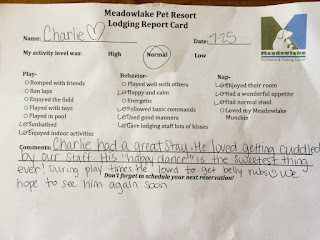 Meadowlake Pet Resort
Lodging Report Card
Name: Charlie Date: 7-25
My activity level was: High Normal Low
Play- Behavior- Nap-
Romped with friends Played well with others Enjoyed their room
Ran laps Happy and calm Had a wonderful appetite
Enjoyed the field Energetic Had normal stool
Played with toys Followed basic commands Loved my Meadowlake
Played in pool Used good manners Munchie
Sunbathed Gave lodging staff lots of kisses
Enjoyed indoor activities
Comments: Charlie had a great stay. He loved getting cuddled
by our staff. His "happy dance" is the sweetest thing
ever! During play times he loved to get belly rubs We
Don't forget to schedule your next reservation!
hope to see him again soon
Meadowlake